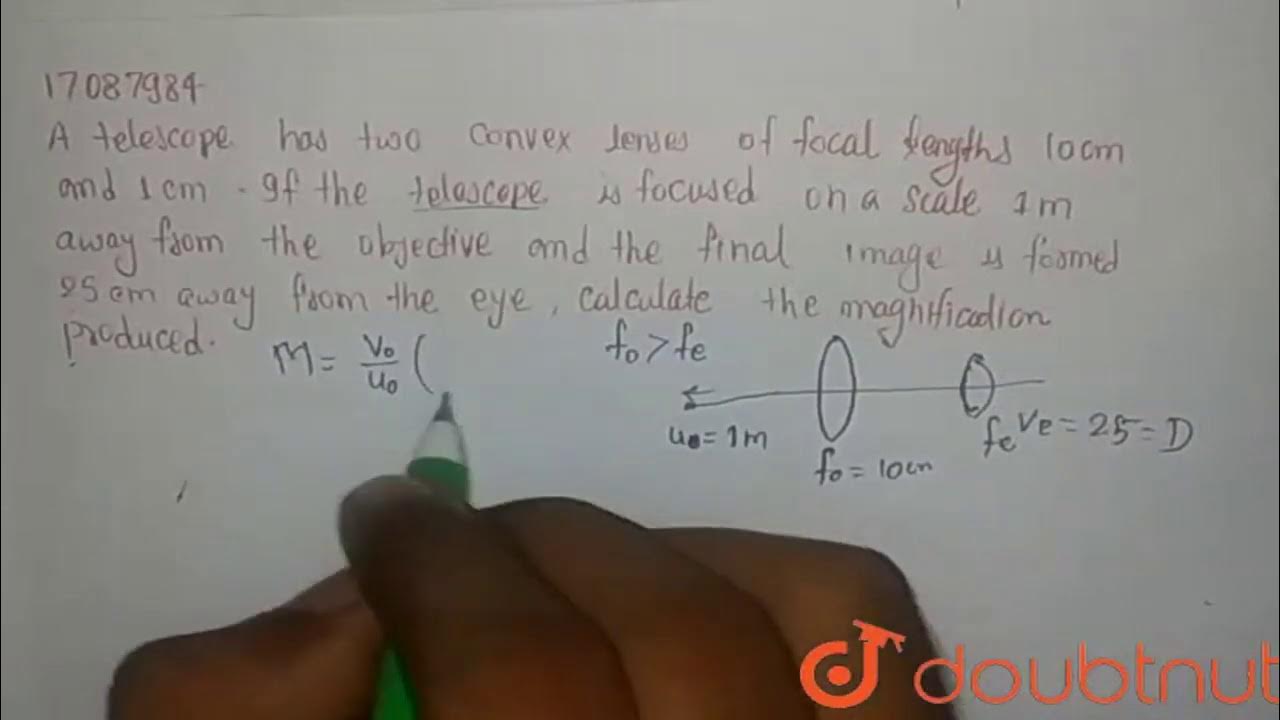 17087984
A telescope has two convex lenses of focal lengths 10cm
and 1cm. If the telescope is focused on a scale 1m
away from the objective and the final image is formed
25cm away from the eye, calculate the magnification
produced.
M = Vo/uo (
fo > fe
uo = 1m
fo = 10cm
fe Ve = 25 = D
doubtnut